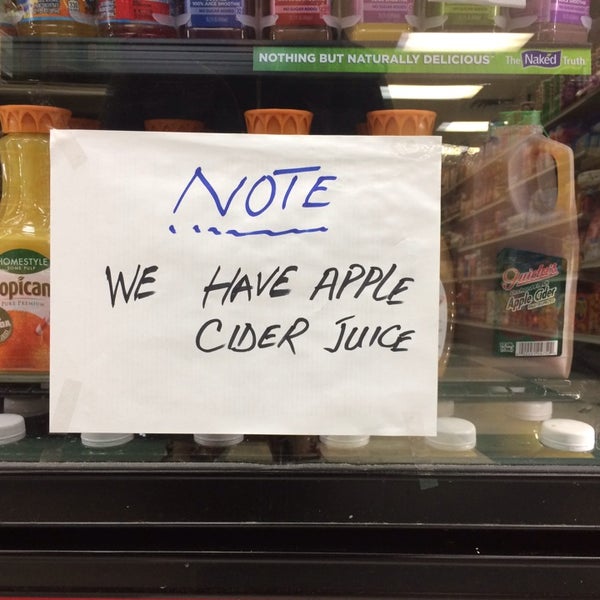 NOTHING BUT NATURALLY DELICIOUS™ The Naked Truth
NOTE
WE HAVE APPLE
CIDER JUICE
HOMESTYLE
SOME PULP
opican
PURE PREMIUM
Apple Cider